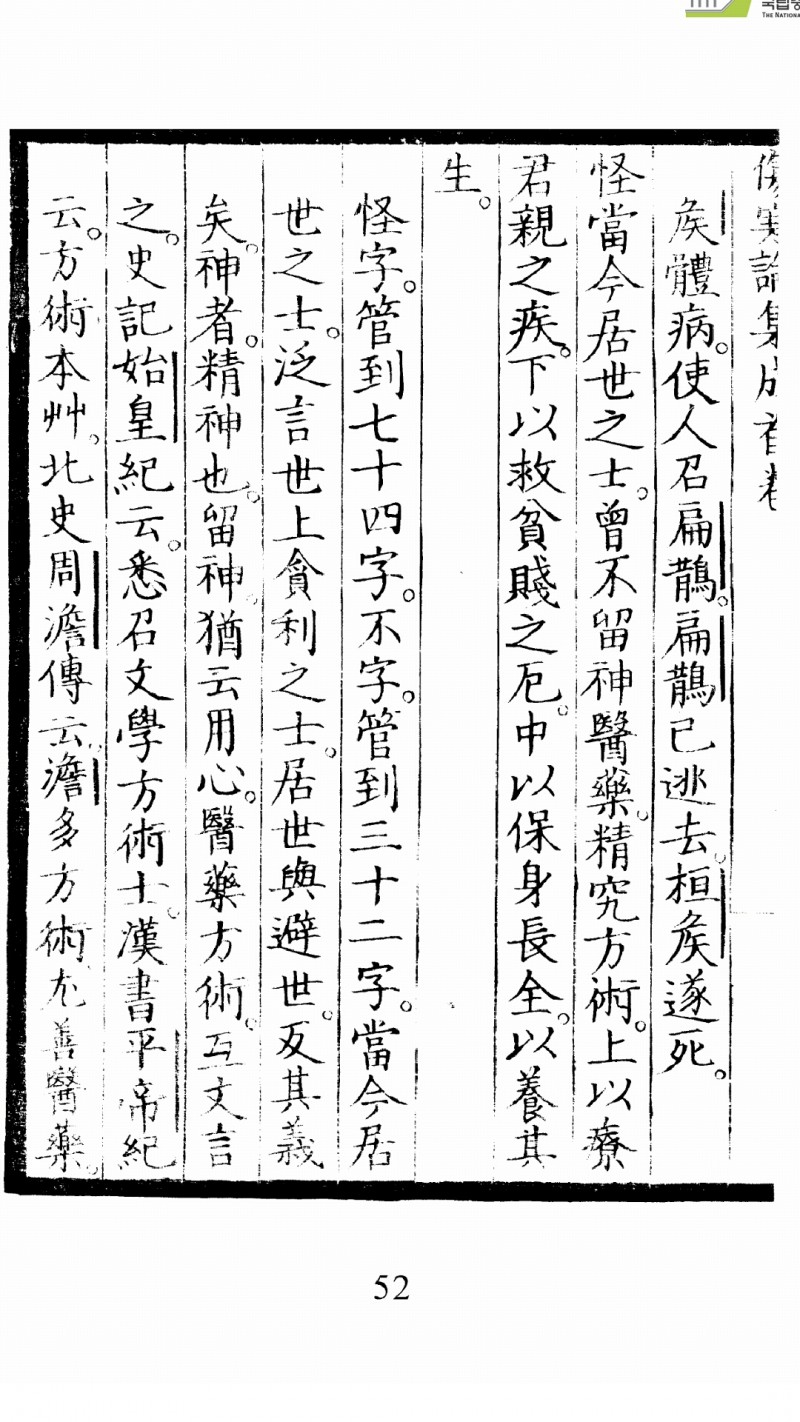 傷寒論集成首卷
矦體病。使人召扁鵲。扁鵲已逃去。桓矦遂死。
怪當今居世之士。曾不留神醫藥。精究方術。上以療
君親之疾。下以救貧賤之厄。中以保身長全。以養其
生。
怪字。管到七十四字。不字。管到三十二字。當今居
世之士。泛言世上貪利之士。居世與避世。反其義
矣。神者。精神也。留神。猶云用心。醫藥方術。互文言
之。史記始皇紀云。悉召文學方術士。漢書平帝紀
云。方術本艸。北史周澹傳云。澹多方術。尤善醫藥。
52